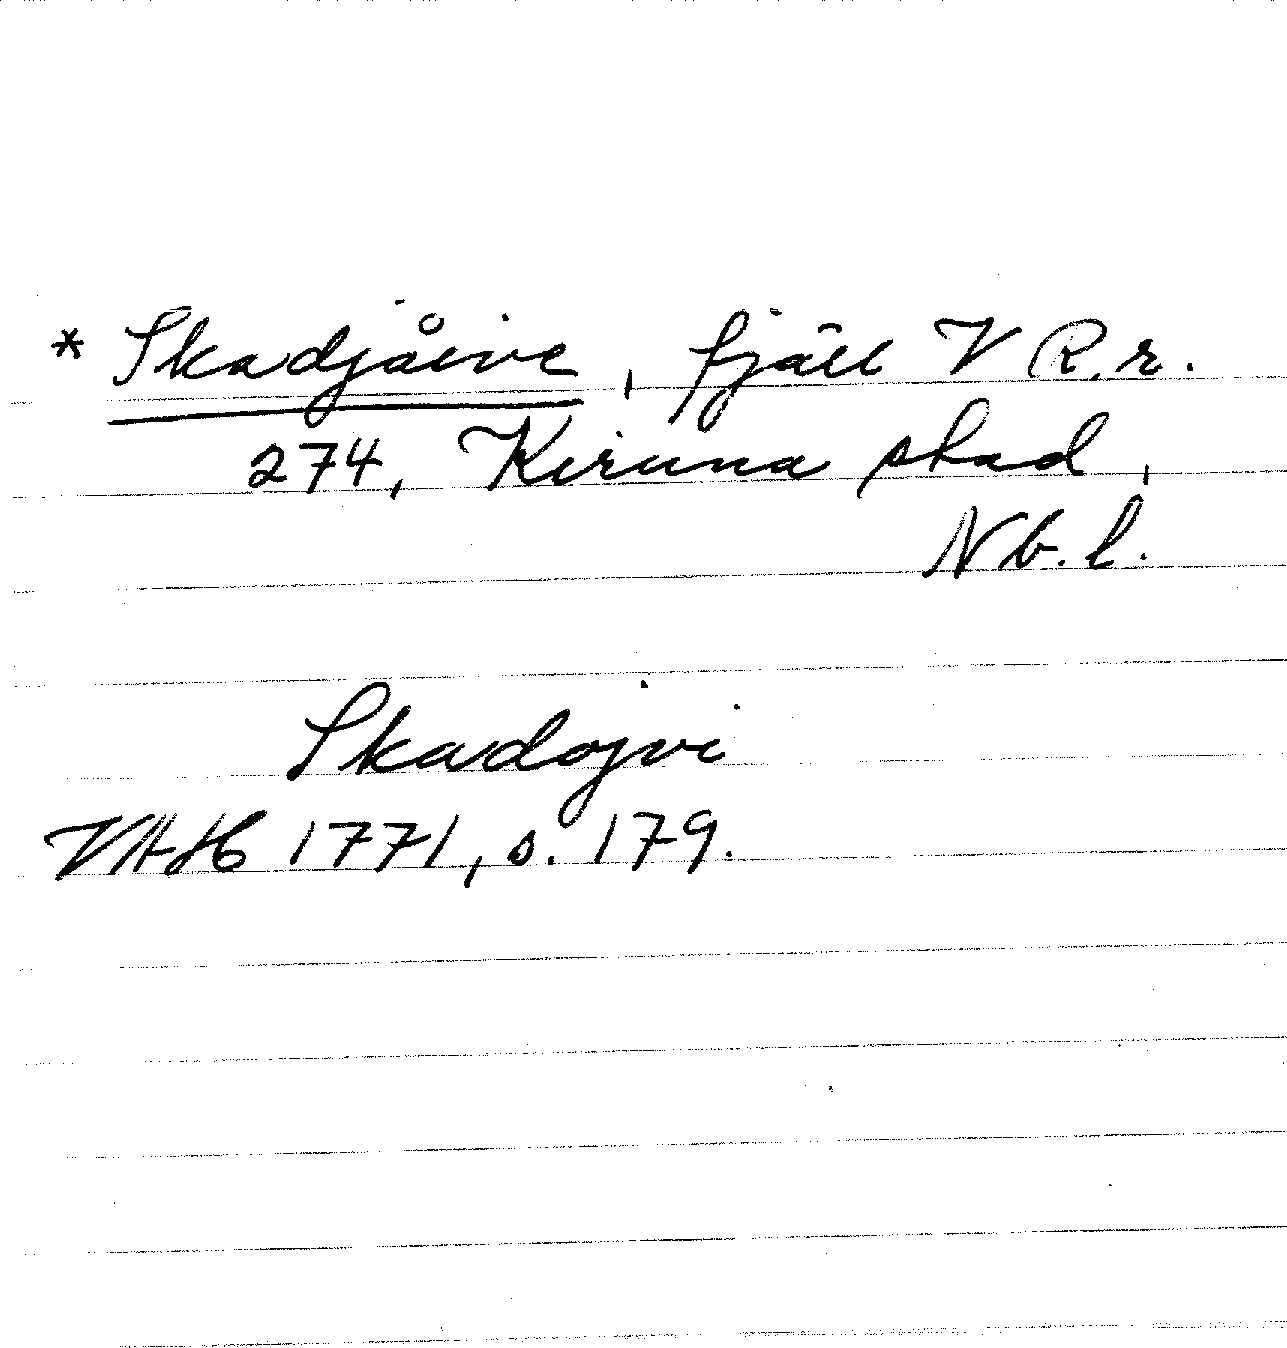 * Skadjåive, fjäll V R.r.
274, Kiruna stad,
Nb.l.
Skadojvi
VHAH 1771, s. 179.